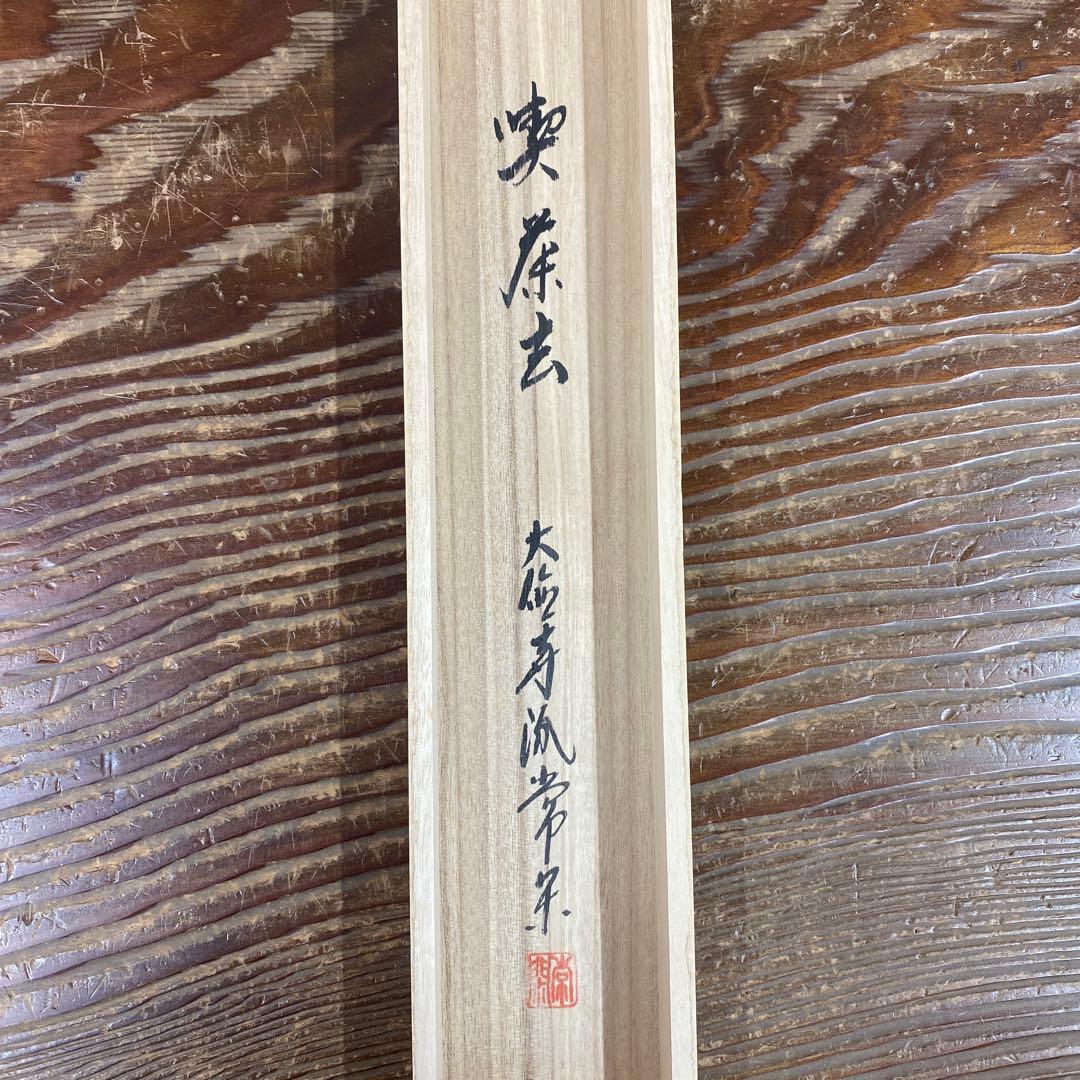 喫茶去
大徳寺派常